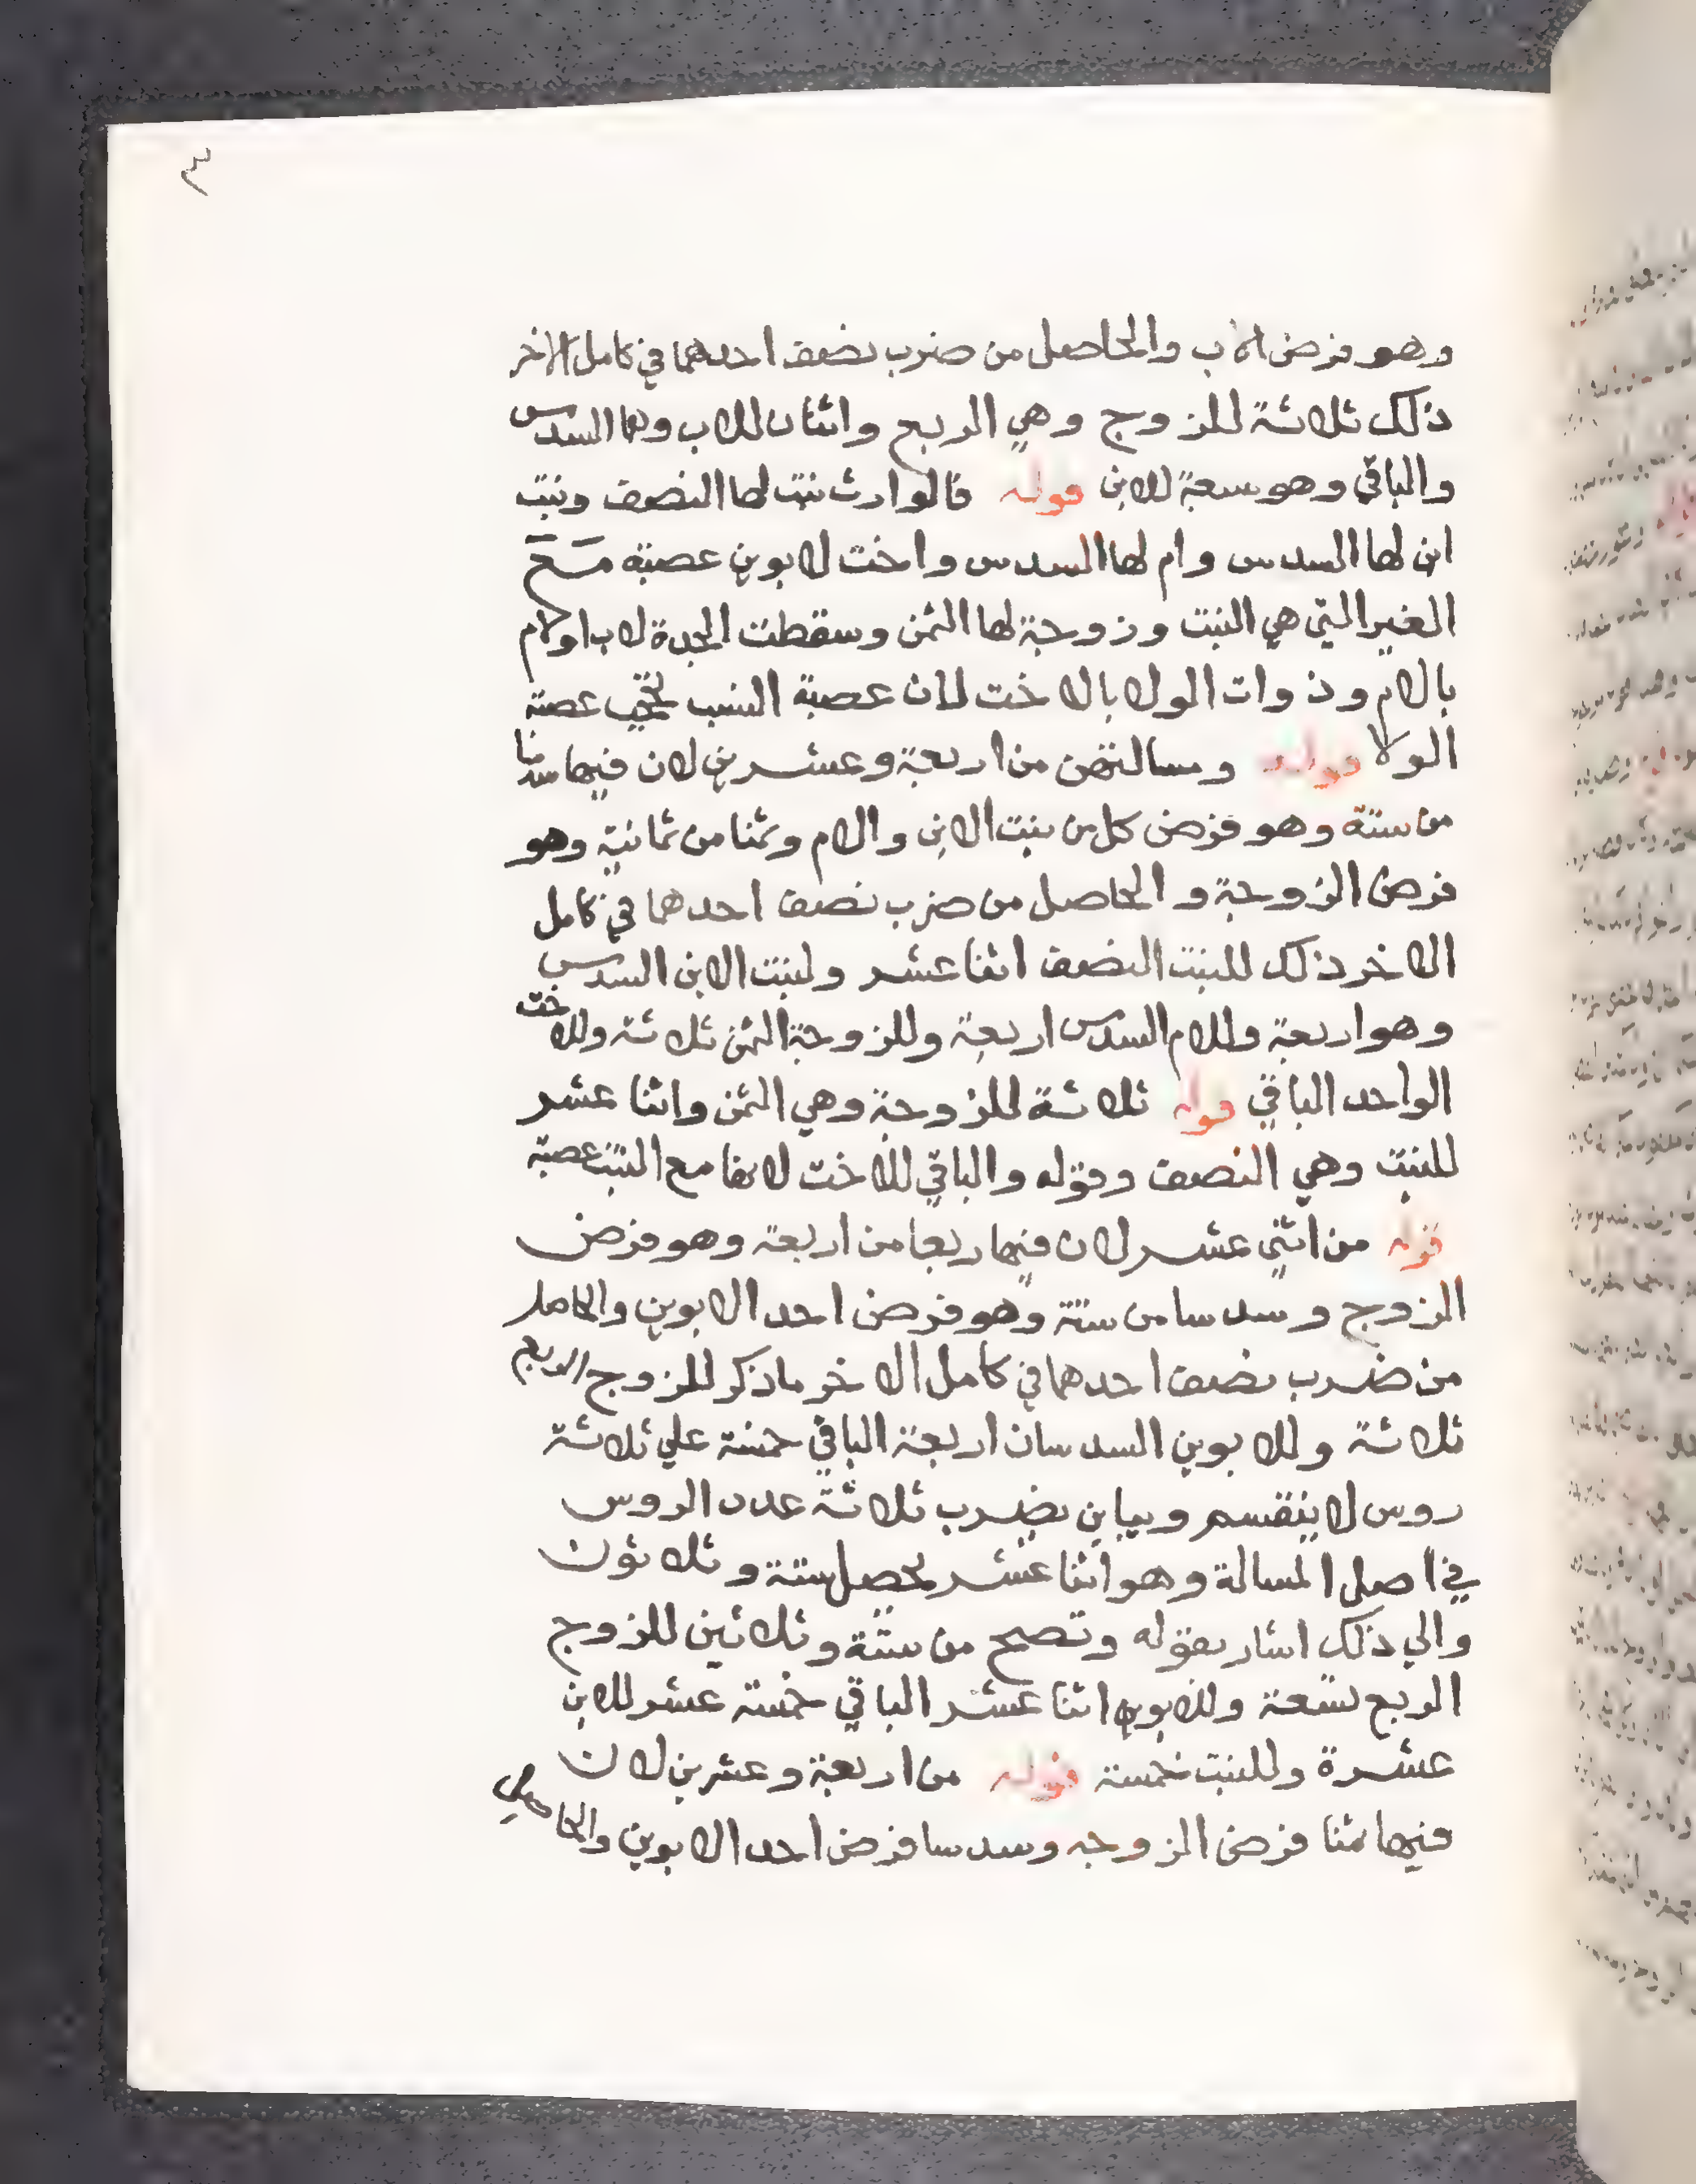 ٣
وهو فرض الاب والحاصل من ضرب نصف احدهما في كامل الاخر
ذلك ثلاثة للزوج وهي الربع واثنان للاب وهما السدس
والباقي وهو سبعة للابن قوله فالوارث بنت لها النصف وبنت
ابن لها السدس وام لها السدس واخت لابوين عصبة مع
الغير التي هي البنت وزوجة لها الثمن وسقطت الجدة لاب او لام
بالام وذوات الولا بالاخت لان عصبة النسب تحجب عصبة
الولا قوله ومسالتهن من اربعة وعشرين لان فيها سدسا
من ستة وهو فرض كل من بنت الابن والام وثمنا من ثمانية وهو
فرض الزوجة والحاصل من ضرب نصف احدهما في كامل
الاخر ذلك للبنت النصف اثنا عشر ولبنت الابن السدس
وهو اربعة وللام السدس اربعة وللزوجة الثمن ثلاثة وللاخت
الواحد الباقي قوله ثلاثة للزوجة وهي الثمن واثنا عشر
للبنت وهي النصف وقوله والباقي للاخت لانها مع البنت عصبة
قوله من اثني عشر لان فيها ربعا من اربعة وهو فرض
الزوج وسدسا من ستة وهو فرض احد الابوين والحاصل
من ضرب نصف احدهما في كامل الاخر ما ذكر للزوج الربع
ثلاثة وللابوين السدسان اربعة الباقي خمسة علي ثلاثة
روس لا ينقسم ويباين يضرب ثلاثة عدد الروس
في اصل المسالة وهو اثنا عشر يحصل ستة وثلاثون
والي ذلك اشار بقوله وتصح من ستة وثلاثين للزوج
الربع تسعة وللابوين اثنا عشر الباقي خمسة عشر للابن
عشرة وللبنت خمسة قوله من اربعة وعشرين لان
فيها ثمنا فرض الزوجه وسدسا فرض احد الابوين والحاصل